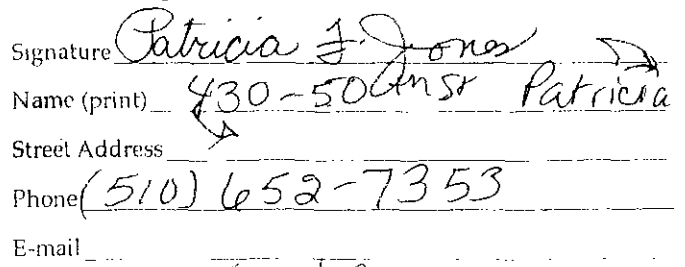 Signature Patricia F. Jones
Name (print) 430-50th St Patricia
Street Address
Phone (510) 652-7353
E-mail